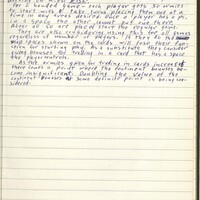 for 2 handed games each player gets 30 armies
to start with & take turns placing them out one at a
time in any areas desired. Once a player has a piece
in a space the other cannot put one there.
When all 60 are placed start the regular turns.
They are also considering using this for all games
regardless of number of players. If they do the
map spaces shown on the cards will lose their
function for starting play. As a substitute they consider
giving bonuses for trading in a card that has a space
the player controls.
As the armies given for trading in cards increase
there comes a point where the continent bonuses be-
come insignificant. Doubling the value of the
continent bonuses at some definite point is being con-
sidered.